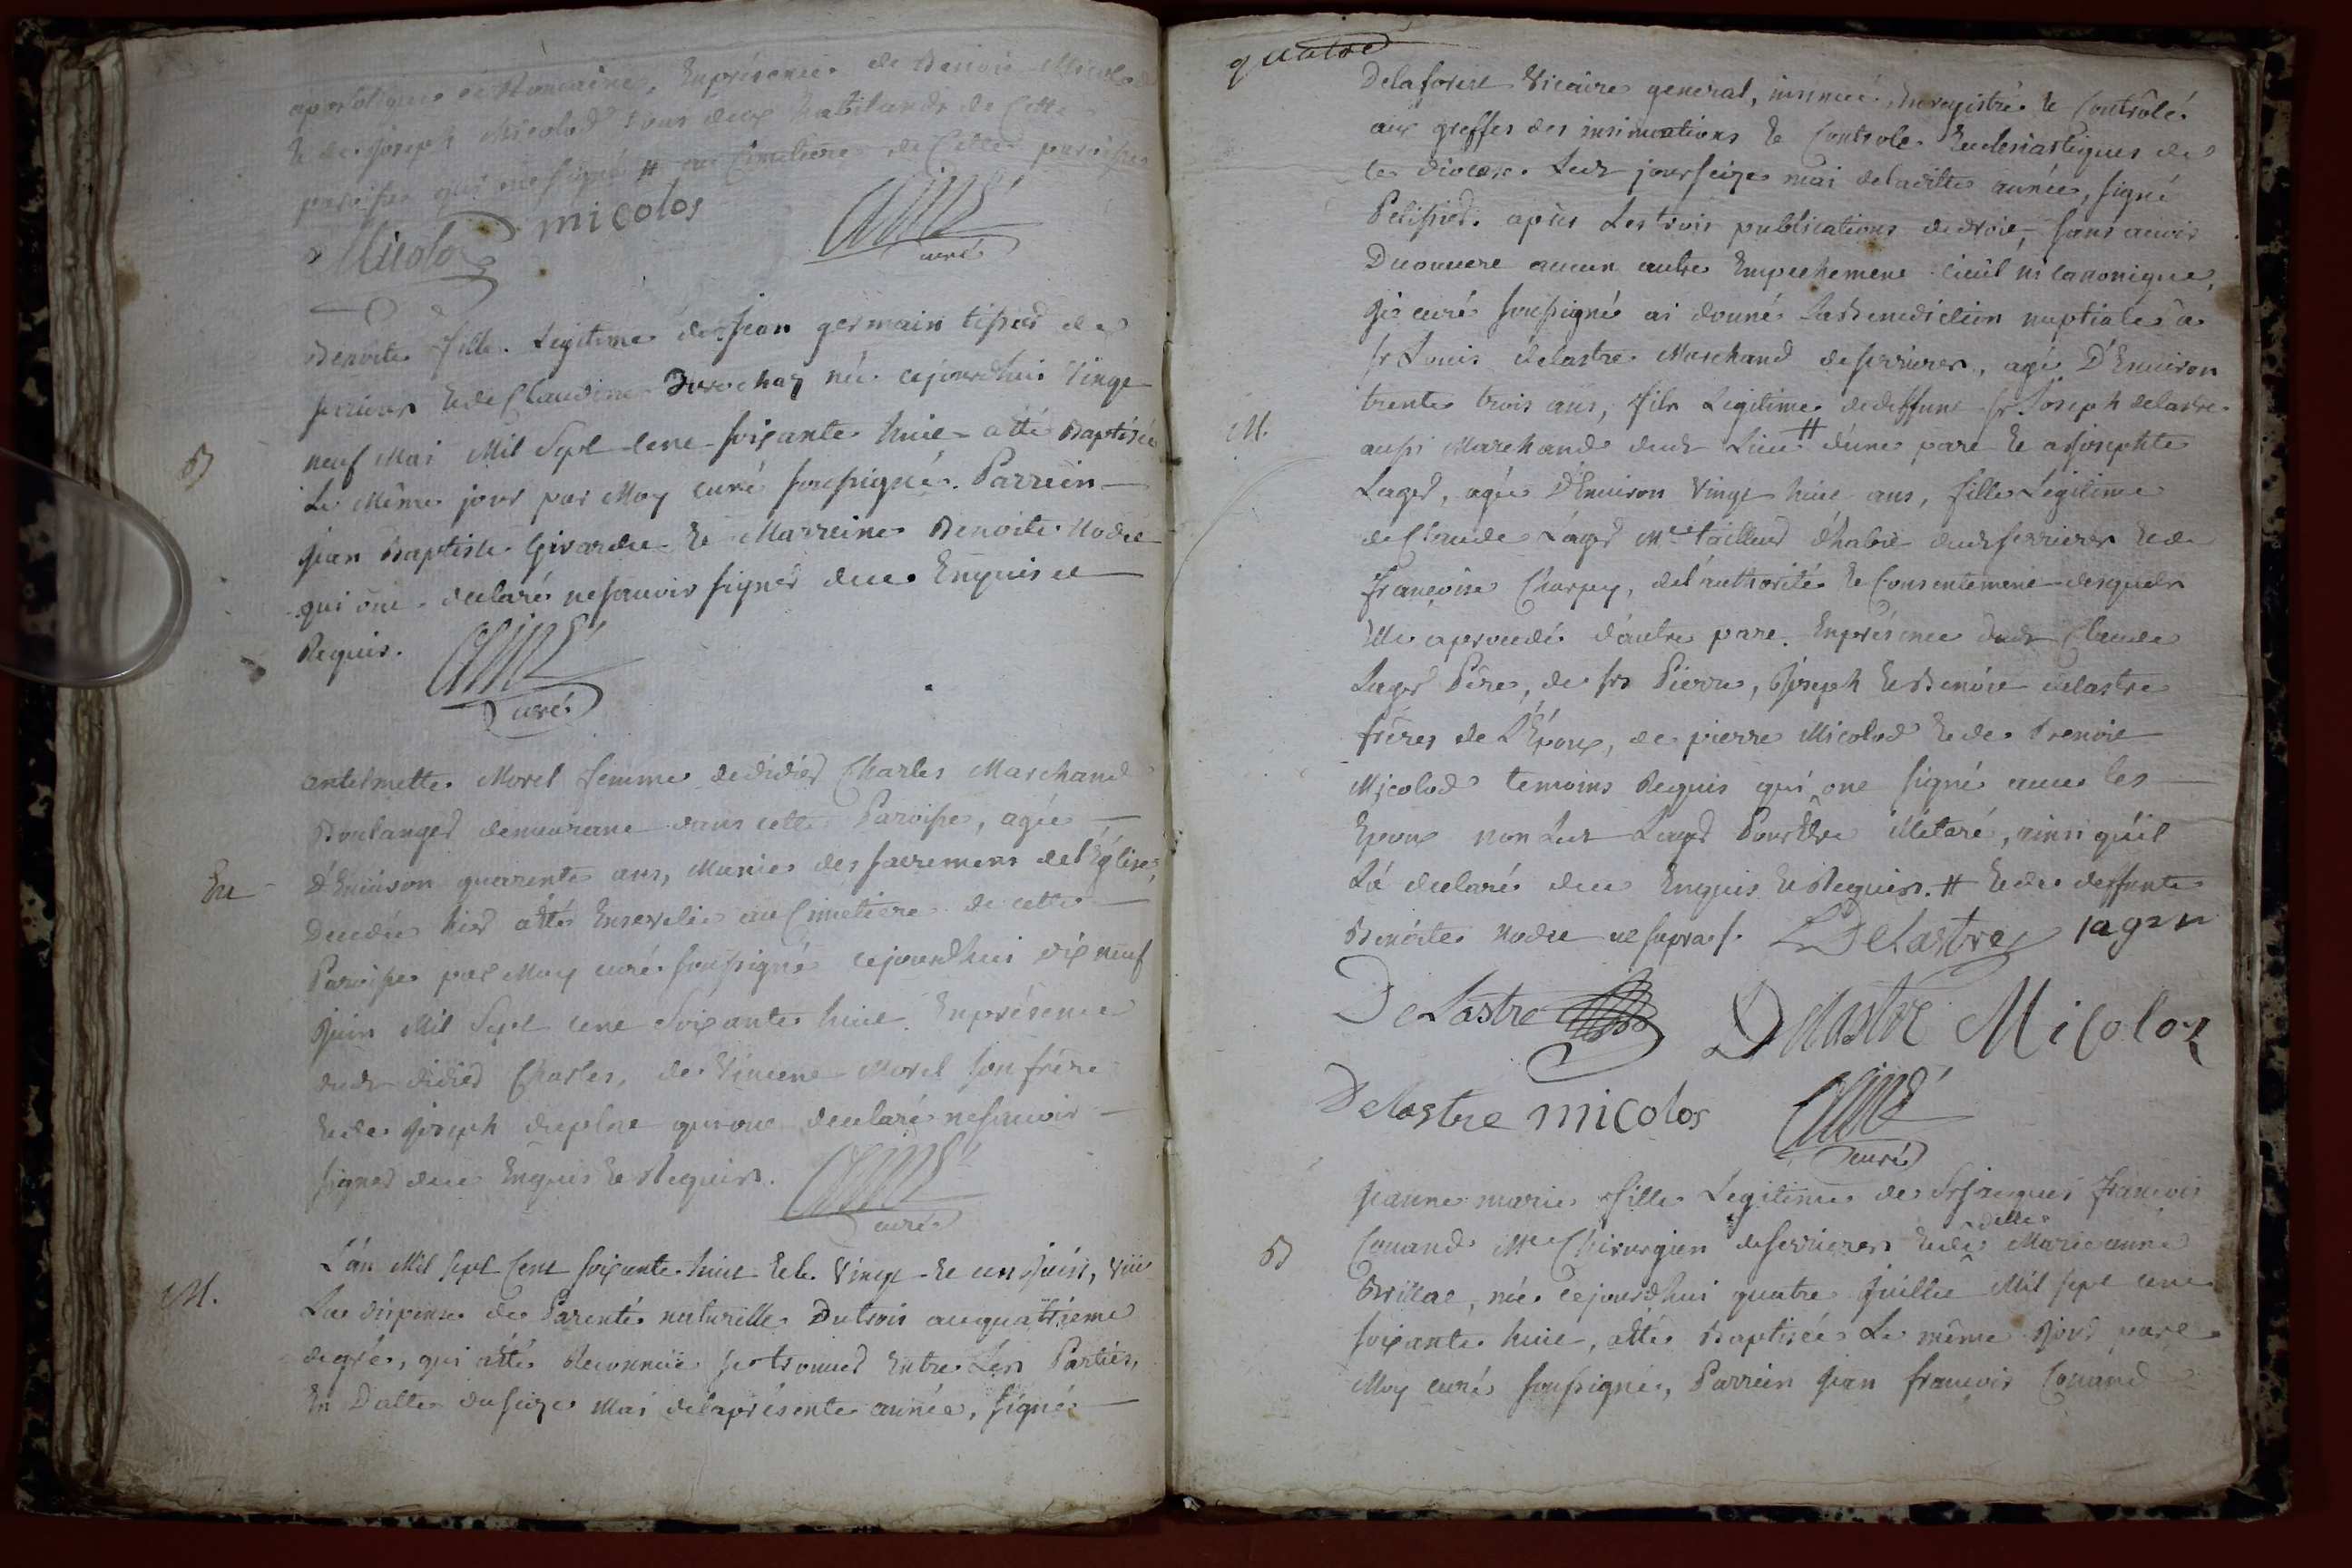 apostolique et Romaine, Enprésence de Benoit Micolod
& de Joseph Micolod tous deux habitands de Cette
paroisse qui ont signé # au Cimetiere de Cette paroisse
Micolod micolos
Aimé
curé
B
Benoite fille Legitime de Jean germain tissier de
serrieres & de Claudine Durochay née cejourdhui Vingt
neuf Mai Mil Sept Cent soixante huit a été Baptisée
Le Même jour par Moy curé soussigné. Parrein
Jean Baptiste Girardet & Marreine Benoite Nodet
qui ont declaré nesçauoir signer dece Enquis et
Requis.
Aimé
curé
Ent
antelmette Morel femme dedidier Charles Marchand
Boulanger demeurant dans cette Paroisse, agée
D'Enuiron quarente ans, Munie des sacremens del'Église,
Decedée hier a été Ensevelie au Cimetiere de cette
Paroisse par Moy curé soussigné cejourdhui dix neuf
Juin Mil Sept Cent Soixante huit Enprésence
dudt didier Charles, de Vincent Morel son frére
& de Joseph qui ont declaré nesçauoir
signer dece Enquis & Requis.
Aimé
curé
M.
L'an Mil sept Cent soixante huit & le Vingt & un Juin, Vüe
La dispense de Parenté naturelle Du trois au quatrieme
degré, qui a été Reconnüe se trouuer Entre Les Parties,
En Datte du seize Mai delaprésente année, signée
quatre
Delaforest Vicaire general, insinué, Enregistré & Contrôlé
aux greffes des insinuations & Controle Ecclesiastiques de
ce diocese Ledt jour seize mai deladitte année, signé
Pelissier. après Les trois publications dedroit, sans auoir
Decouuert aucun autre Empechement Ciuil ni Canonique,
Je curé soussigné ai donné La Benediction nuptiale à
sr Louis delastre Marchand de serrieres, agé D'Enuiron
trente trois ans, fils Legitime dedeffunt sr Joseph delastre
M.
aussi Marchand dudt Lieu # d'une part & a Josephte
Lager, agée D'Enuiron Vingt huit ans, fille Legitime
de Claude Lager Me tailleur d'habit dudt serrieres & de
françoise Charpy, del'authorité & Consentement desquels
Elle aprocedé d'autre part. Enprésence dudt Claude
Lager Pére, de srs Pierre, Joseph & Benoit delastre
fréres de L'Époux, de pierre Micolod & de Benoit
Micolod temoins Requis qui ont signé auec les
Epoux non Ledt Lager Pour Etre illétaré, ainsi qu'il
L'a declaré dece Enquis & Requis. # & de deffunte
Benoite Nodet ut supra s. LDelastre lager
DeLastre Delastre Micoloz
Delastre micolos Aimé
curé
B
Jeanne marie fille Legitime de Sr jacques françois
Couand Me Chirurgien de serrieres & de delle Marieanne
Brillat, née cejourdhui quatre Juillet Mil sept cent
soixante huit, a été Baptisée Le même Jour par
Moy curé soussigné, Parrein Jean françois Couand